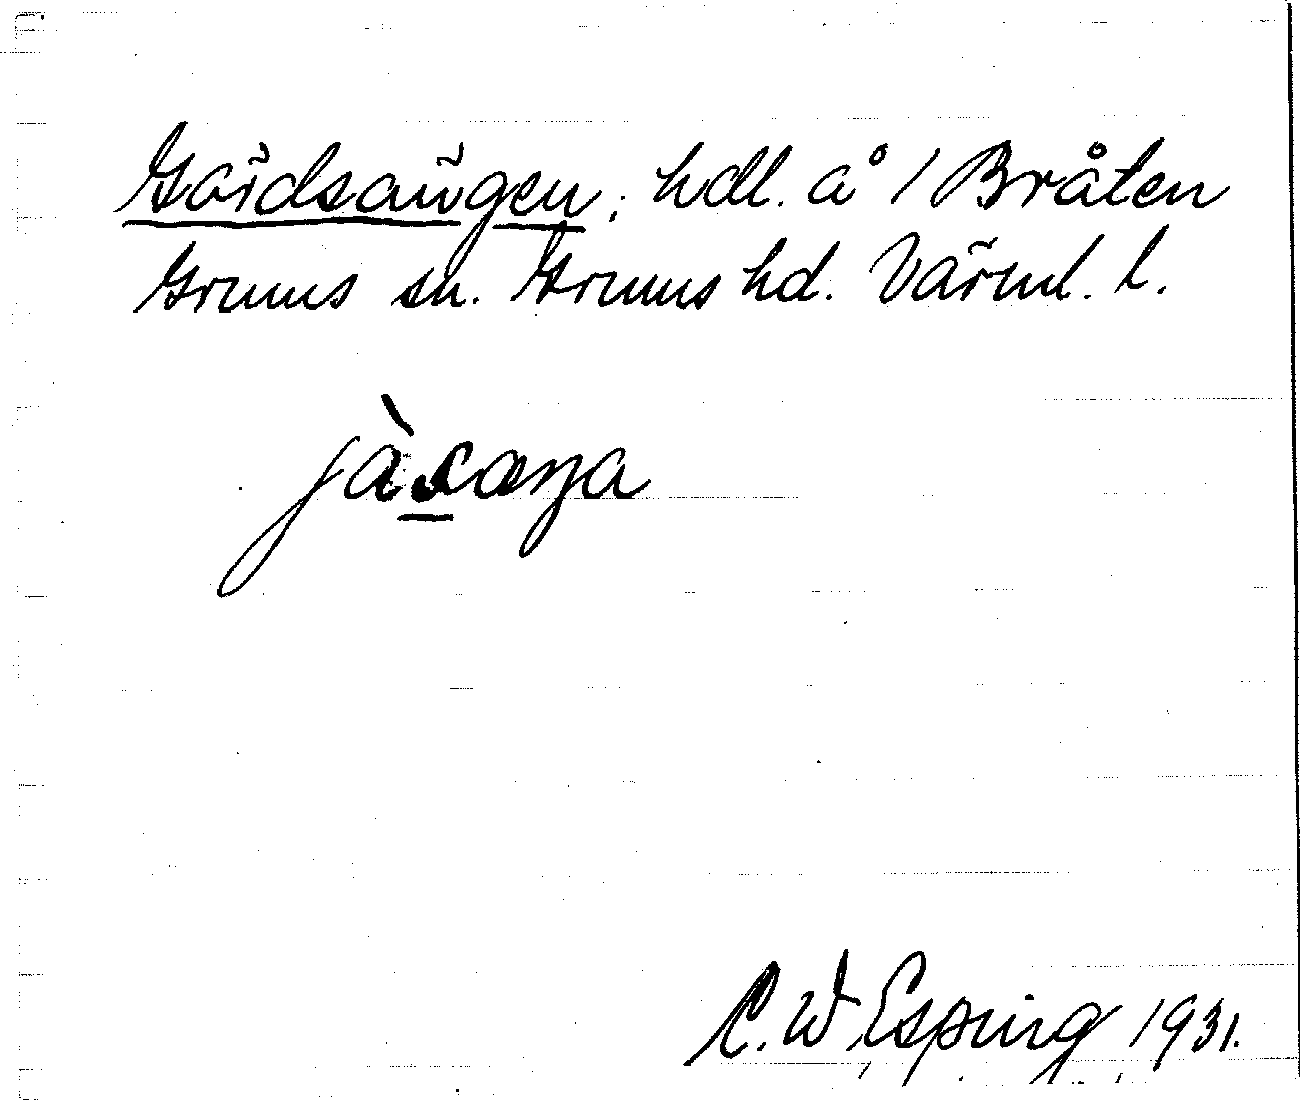 Gärdsängen, hdl. å / Bråten
Grums sn. Grums hd. Värml. l.
C. W. Esping 1931.